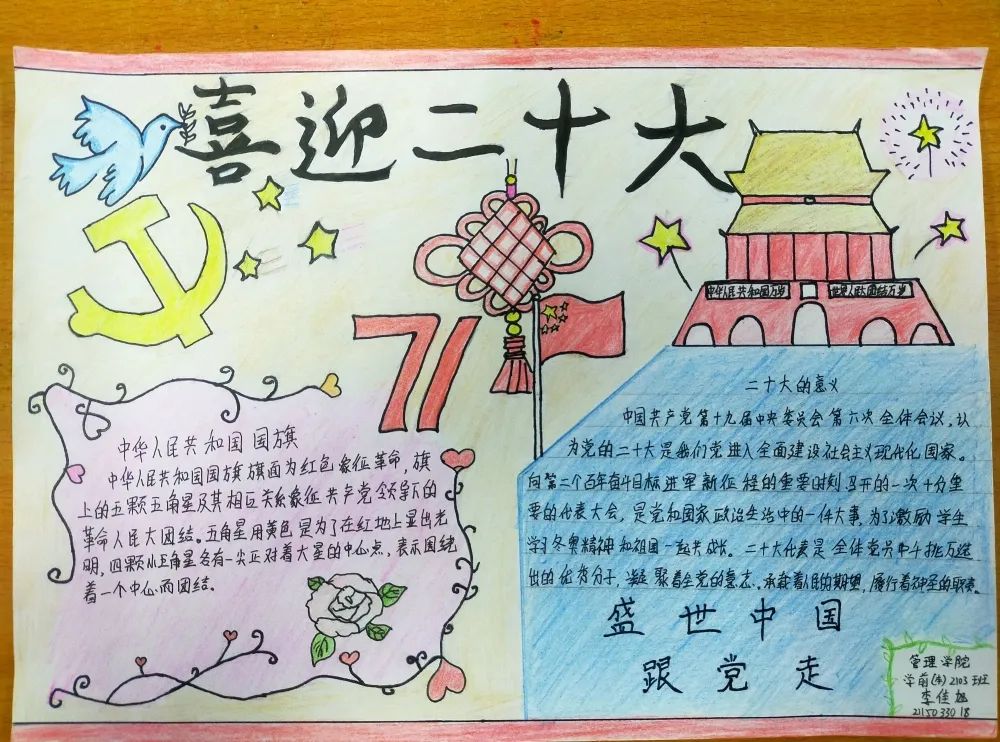 喜迎二十大
中华人民共和国万岁
世界人民大团结万岁
71
中华人民共和国国旗
中华人民共和国国旗旗面为红色象征革命，旗
上的五颗五角星及其相互关系象征共产党领导下的
革命人民大团结。五角星用黄色是为了在红地上显出光
明，四颗小五角星各有一尖正对着大星的中心点，表示围绕
着一个中心而团结。
二十大的意义
中国共产党第十九届中央委员会第六次全体会议，认
为党的二十大是我们党进入全面建设社会主义现代化国家。
向第二个百年奋斗目标进军新征程的重要时刻召开的一次十分重
要的代表大会，是党和国家政治生活中的一件大事，为了激励学生
学习冬奥精神和祖国一起共成长。二十大代表是全体党员中千挑万选
出的优秀分子，凝聚着全党的意志、承载着人民的期望，履行着神圣的职责。
盛世中国
跟党走
管理学院
学前(本)2103班
李佳
2115033018